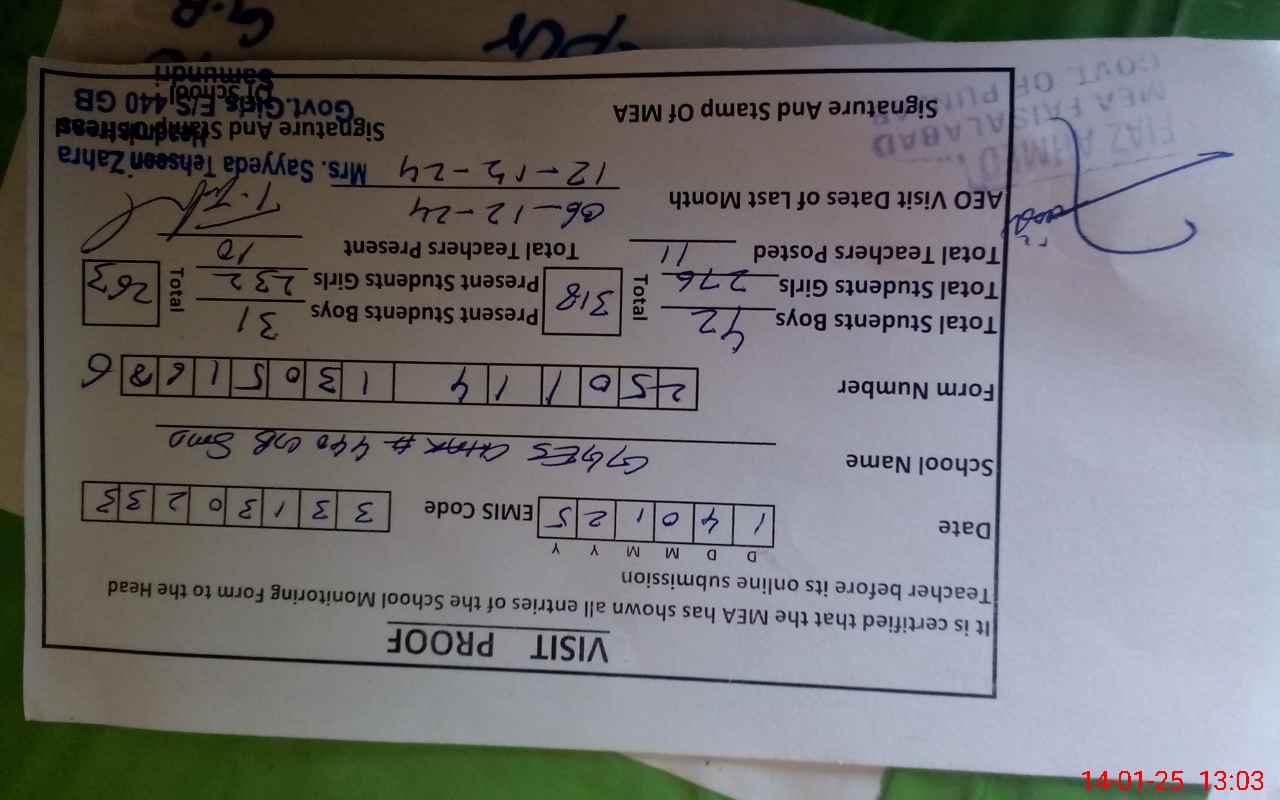 VISIT PROOF
It is certified that the MEA has shown all entries of the School Monitoring Form to the Head
Teacher before its online submission
D D M M Y Y
Date 1 4 0 1 2 5 EMIS Code 3 3 1 3 0 2 3 3
School Name GGES Chak # 440 GB Smd
Form Number 2 5 0 1 1 4 1 3 0 5 1 6 8 6
Total Students Boys 42 Total 318 Present Students Boys 31 Total 263
Total Students Girls 276 Present Students Girls 232
Total Teachers Posted 11 Total Teachers Present 10
AEO Visit Dates of Last Month 06-12-24
12-12-24 Mrs. Sayyeda Tehseen Zahra
Headmistress
Signature And Stamp Of MEA Signature And Stamp
Govt.Girls E/S 440 GB
Of School
Samundri
FIAZ AHMED
MEA FAISALABAD
GOVT. OF PUNJAB
G.B
14-01-25 13:03